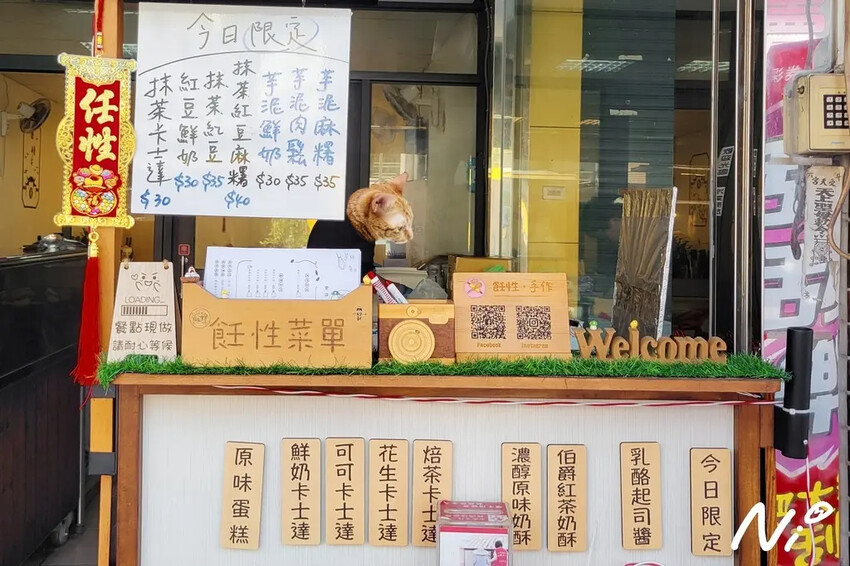 今日限定
抹茶卡士達 $30
紅豆鮮奶 $30
抹茶紅豆 $35
抹茶紅豆麻糬 $40
芋泥鮮奶 $30
芋泥肉鬆 $35
芋泥麻糬 $35
任性
LOADING...
餐點現做
請耐心等候
飪性菜單
飪性·手作
Facebook
Instagram
Welcome
原味蛋糕
鮮奶卡士達
可可卡士達
花生卡士達
焙茶卡士達
濃醇原味奶酥
伯爵紅茶奶酥
乳酪起司醬
今日限定